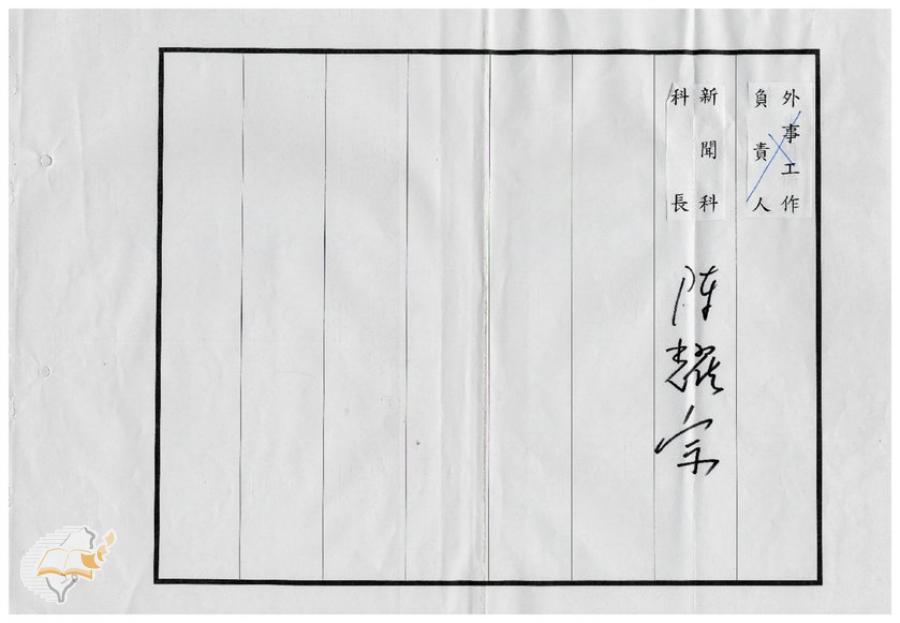 外事工作
負責人
新聞科
科長
陳耀宗